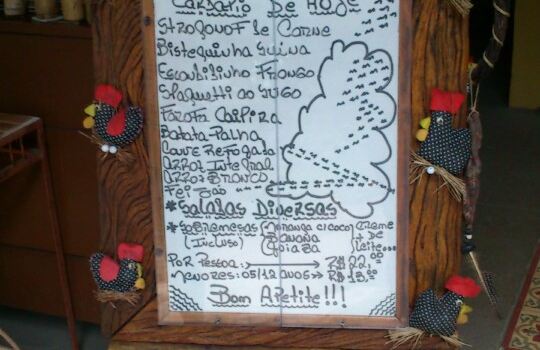 Cardápio De Hoje
Strogonof de Carne
Bistequinha Suína
Escabilinho Frango
Spaguetti ao Sugo
Farofa Caipira
Batata-Palha
Couve Refogada
Arroz Integral
Arroz Branco
Feijão
*Saladas Diversas
*Sobremesas (Moranga c/coco) Creme
(Incluso) Banana + De
Goiaba Leite...
Por Pessoa: R$ 22,00
Menores: 05/12 anos R$ 13,00
Bom Apetite!!!